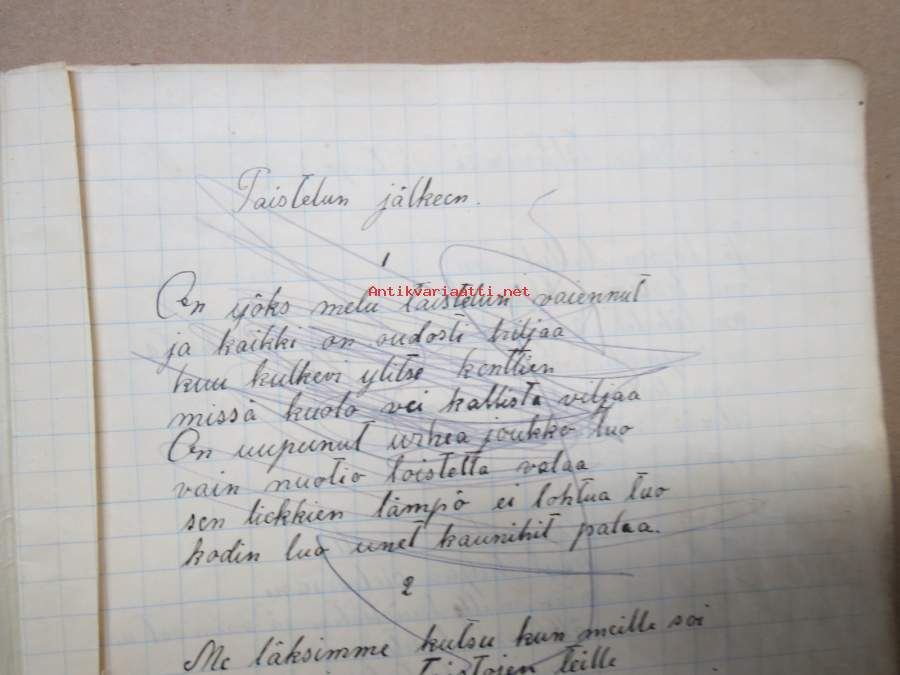 Taistelun jälkeen.
1
Antikvariaatti.net
On yöks melu taistelun vaiennut
ja kaikki on oudosti hiljaa
kuu kulkevi ylitse kenttien
missä kuolo vei kallista viljaa
On uupunut urhea joukko tuo
vain nuotio loistetta valaa
sen liekkien lämpö ei lohtua tuo
kodin luo unet kaunihit palaa.
2
Me läksimme kutsu kun meille soi
taistojen teille